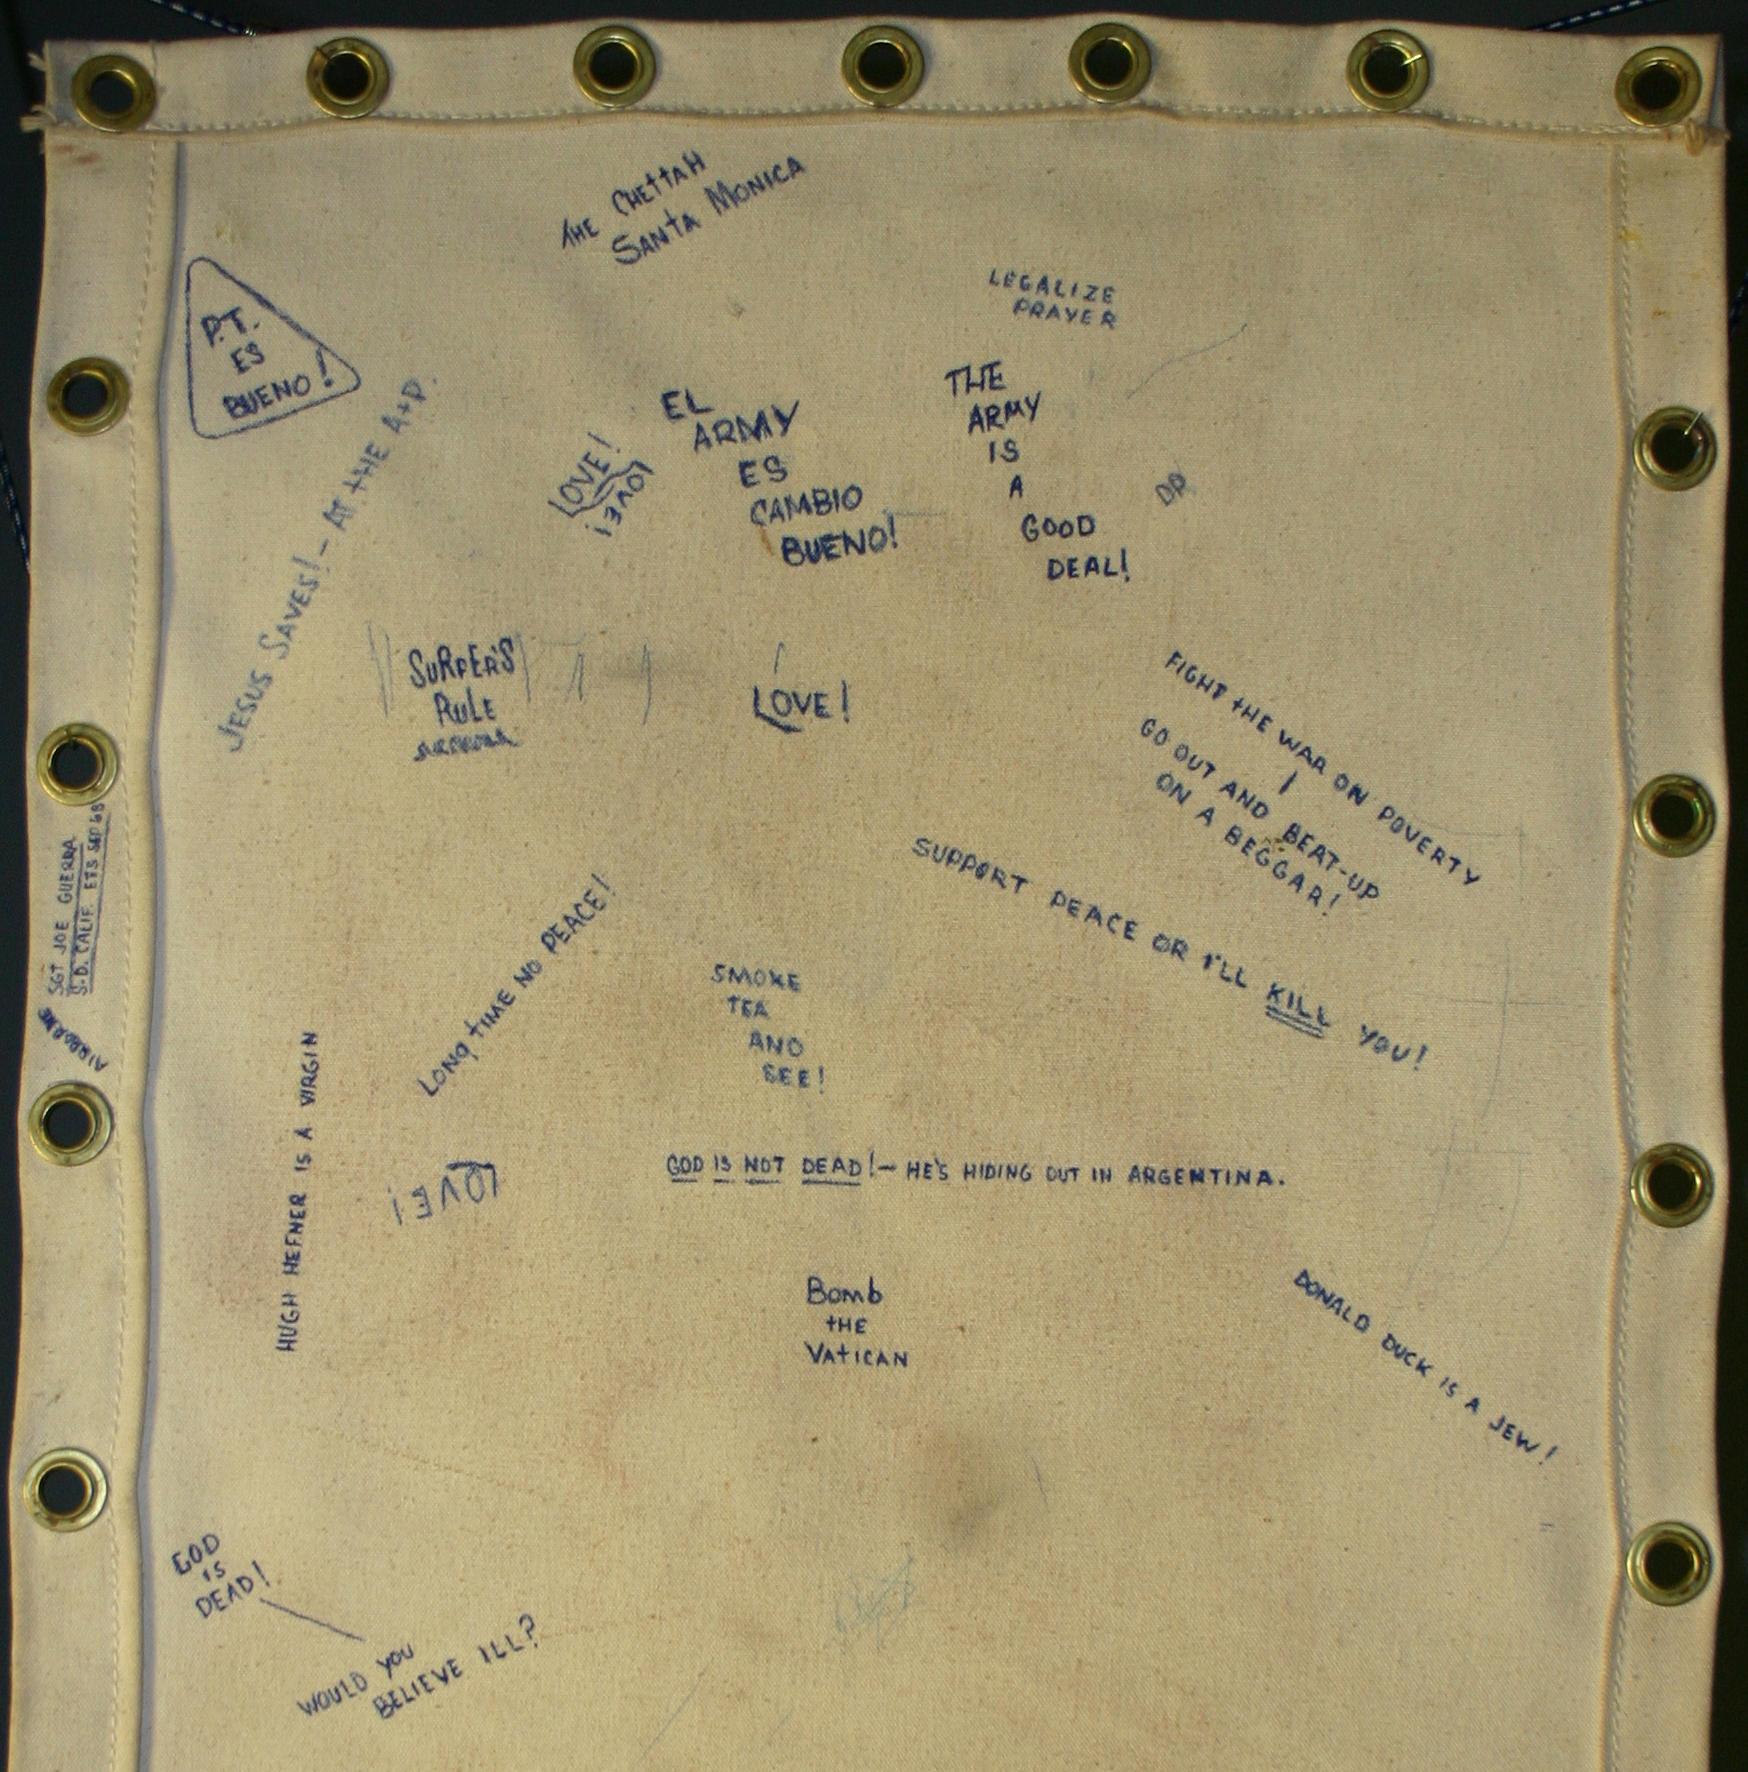 THE CHETTAH
SANTA MONICA
LEGALIZE
PRAYER
P.T.
ES
BUENO!
JESUS SAVES! - AT THE A+P.
LOVE!
LOVE!
EL
ARMY
ES
CAMBIO
BUENO!
THE
ARMY
IS
A
GOOD
DEAL!
DP
SURFER'S
RULE
LOVE!
FIGHT THE WAR ON POVERTY
GO OUT AND BEAT-UP
ON A BEGGAR!
SUPPORT PEACE OR I'LL KILL YOU!
SGT JOE GUERRA
S.D. CALIF. ETS SEP 68
AIRBORNE
LONG TIME NO PEACE!
SMOKE
TEA
AND
SEE!
HUGH HEFNER IS A VIRGIN
LOVE!
GOD IS NOT DEAD! - HE'S HIDING OUT IN ARGENTINA.
Bomb
THE
VATICAN
DONALD DUCK IS A JEW!
GOD
IS
DEAD!
WOULD YOU
BELIEVE ILL?